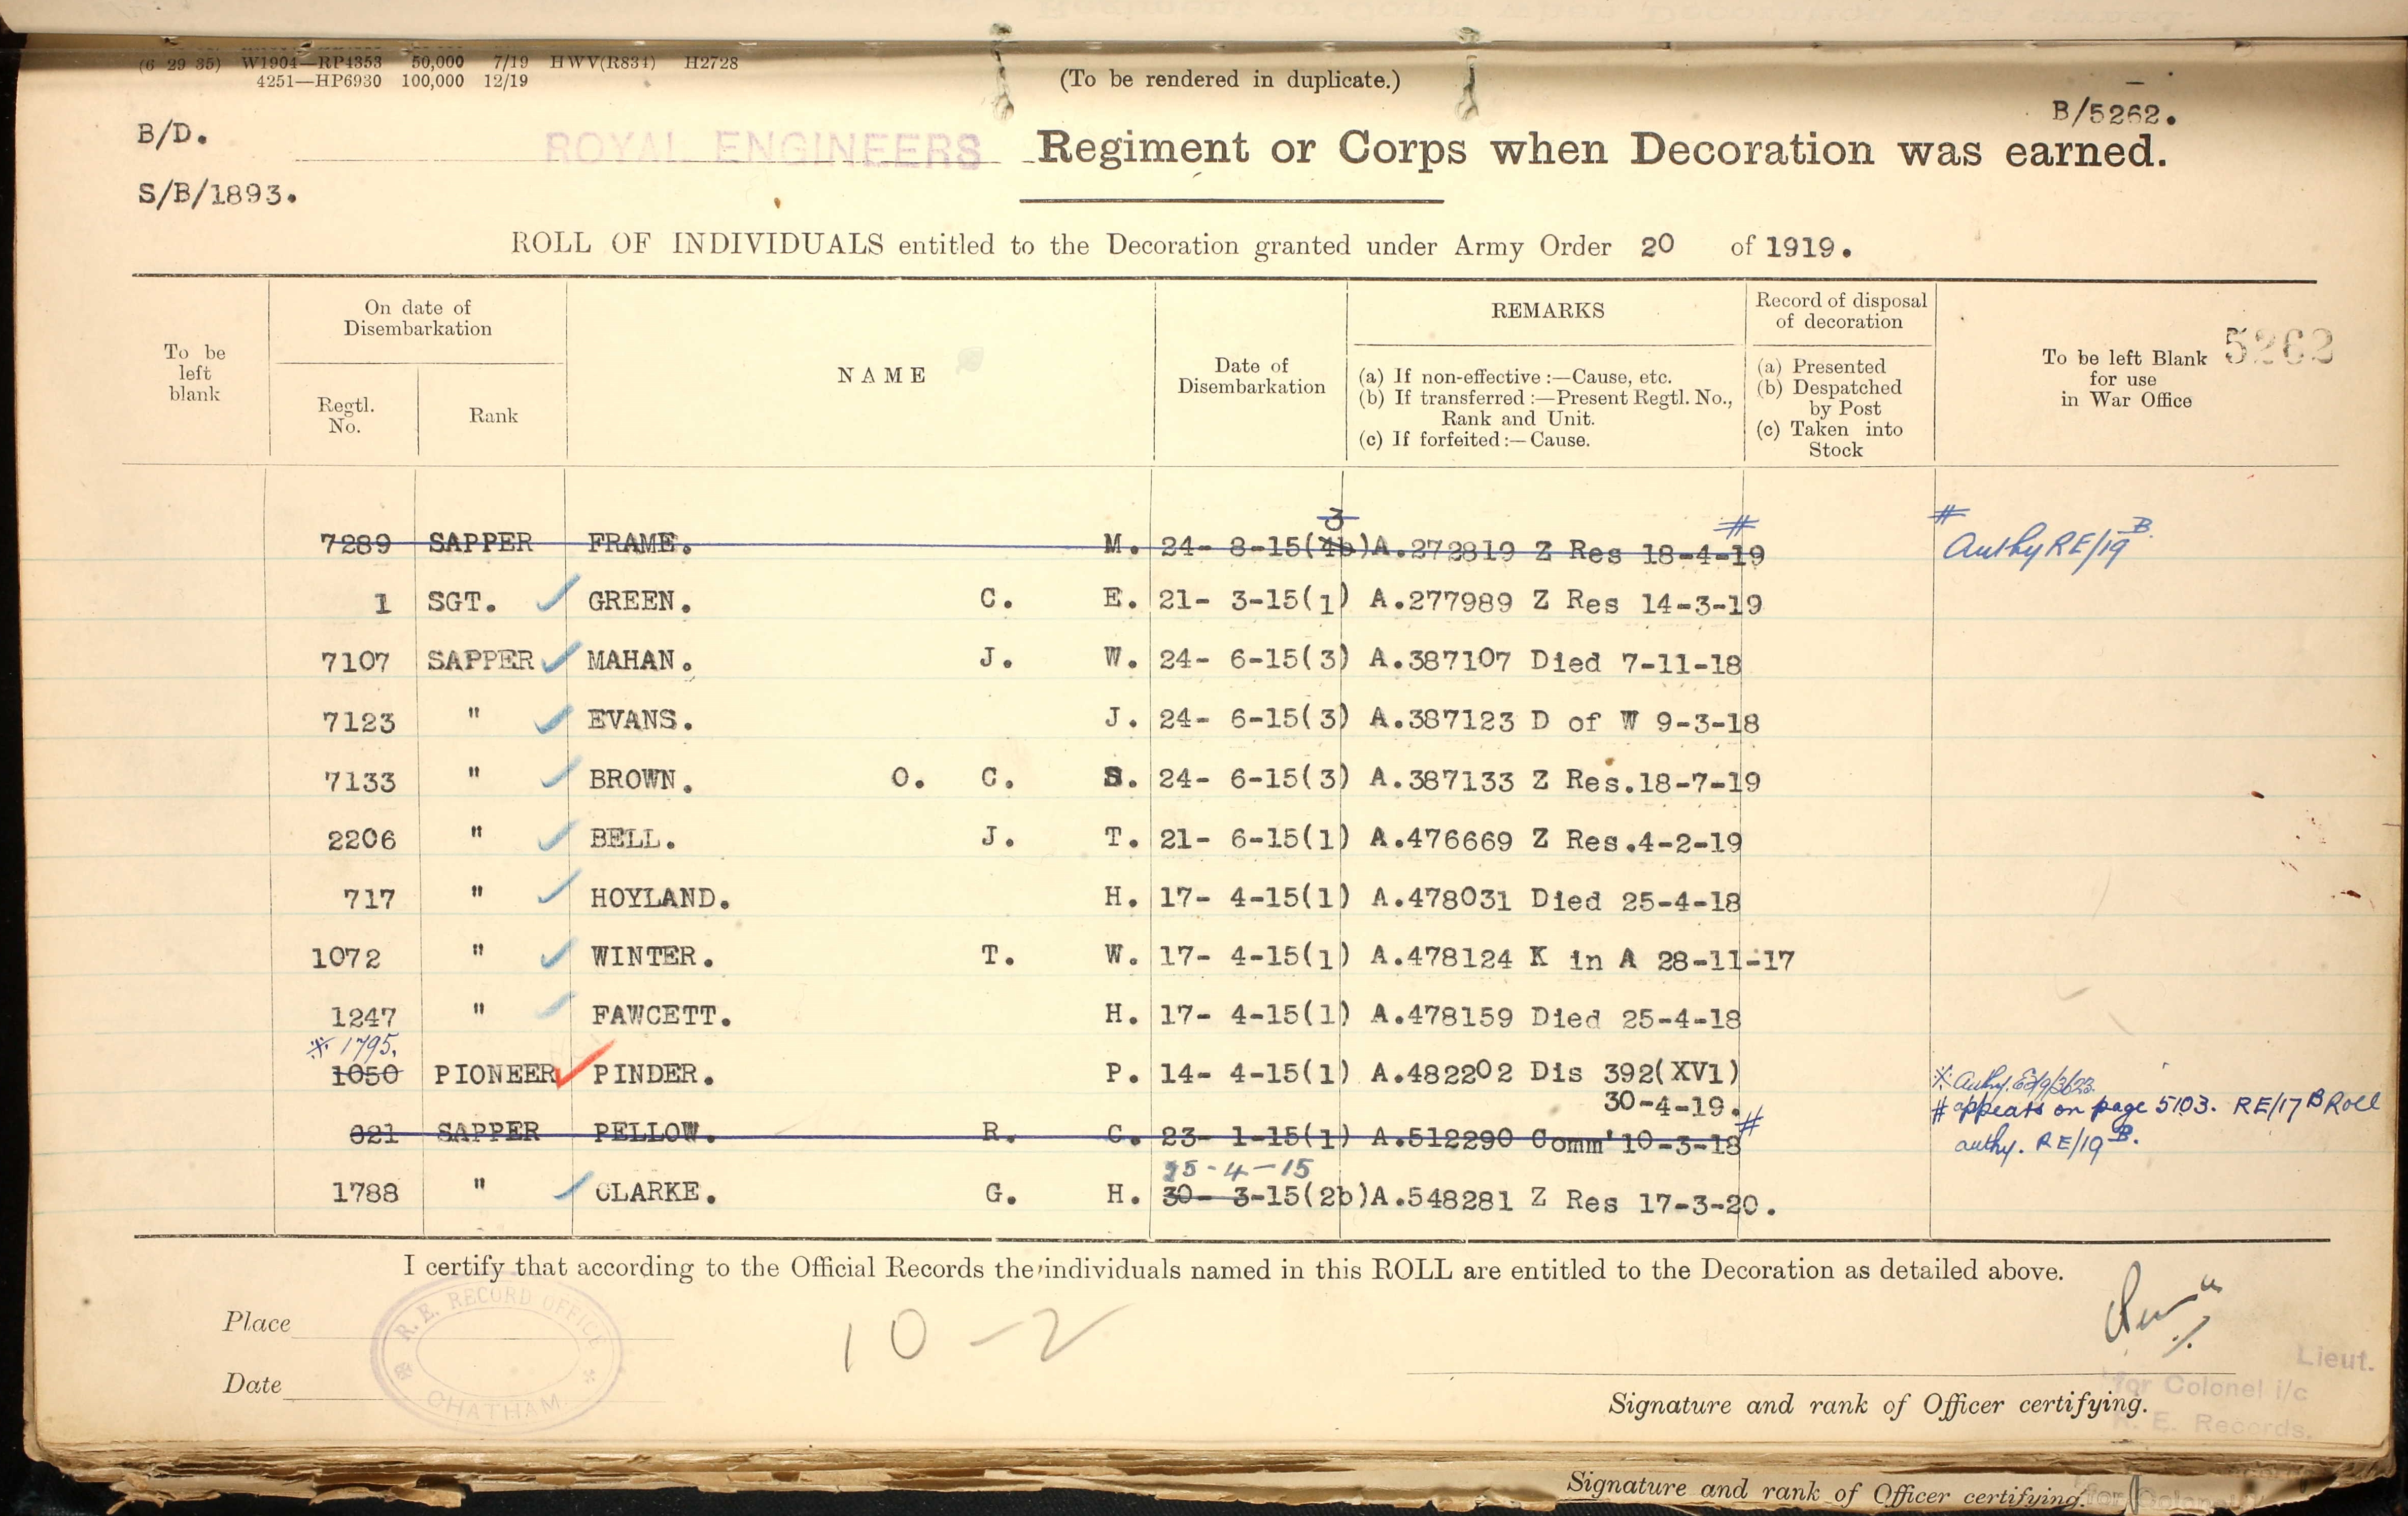 (6 29 35) W1904—RP4353 50,000 7/19 HWV(R834) H2728
4251—HP6930 100,000 12/19
(To be rendered in duplicate.)
B/5262.
B/D.
ROYAL ENGINEERS Regiment or Corps when Decoration was earned.
S/B/1893.
ROLL OF INDIVIDUALS entitled to the Decoration granted under Army Order 20 of 1919.
To be left blank
On date of Disembarkation
Regtl. No.
Rank
NAME
Date of Disembarkation
REMARKS
(a) If non-effective :—Cause, etc.
(b) If transferred :—Present Regtl. No.,
Rank and Unit.
(c) If forfeited :—Cause.
Record of disposal of decoration
(a) Presented
(b) Despatched
by Post
(c) Taken into
Stock
To be left Blank
for use
in War Office
5262
3
7289 SAPPER FRAME. M. 24- 8-15(4b)A.272819 Z Res 18-4-19 # # Authy RE/19 B.
1 SGT. GREEN. C. E. 21- 3-15(1) A.277989 Z Res 14-3-19
7107 SAPPER MAHAN. J. W. 24- 6-15(3) A.387107 Died 7-11-18
7123 " EVANS. J. 24- 6-15(3) A.387123 D of W 9-3-18
7133 " BROWN. O. C. S. 24- 6-15(3) A.387133 Z Res.18-7-19
2206 " BELL. J. T. 21- 6-15(1) A.476669 Z Res.4-2-19
717 " HOYLAND. H. 17- 4-15(1) A.478031 Died 25-4-18
1072 " WINTER. T. W. 17- 4-15(1) A.478124 K in A 28-11-17
1247 " FAWCETT. H. 17- 4-15(1) A.478159 Died 25-4-18
※ 1795.
1050 PIONEER PINDER. P. 14- 4-15(1) A.482202 Dis 392(XV1) ※ Authy.
30-4-19. # appears on page 5103. RE/17 B Roll
821 SAPPER PELLOW. R. C. 23- 1-15(1) A.512290 Comm'10-3-18 # authy. RE/19 B.
25-4-15
1788 " CLARKE. G. H. 30- 3-15(2b)A.548281 Z Res 17-3-20.
I certify that according to the Official Records the individuals named in this ROLL are entitled to the Decoration as detailed above.
Place
R. E. RECORD OFFICE
CHATHAM
10-2
Date
Lieut.
for Colonel i/c
R. E. Records.
Signature and rank of Officer certifying.
Signature and rank of Officer certifying.
for Colonel